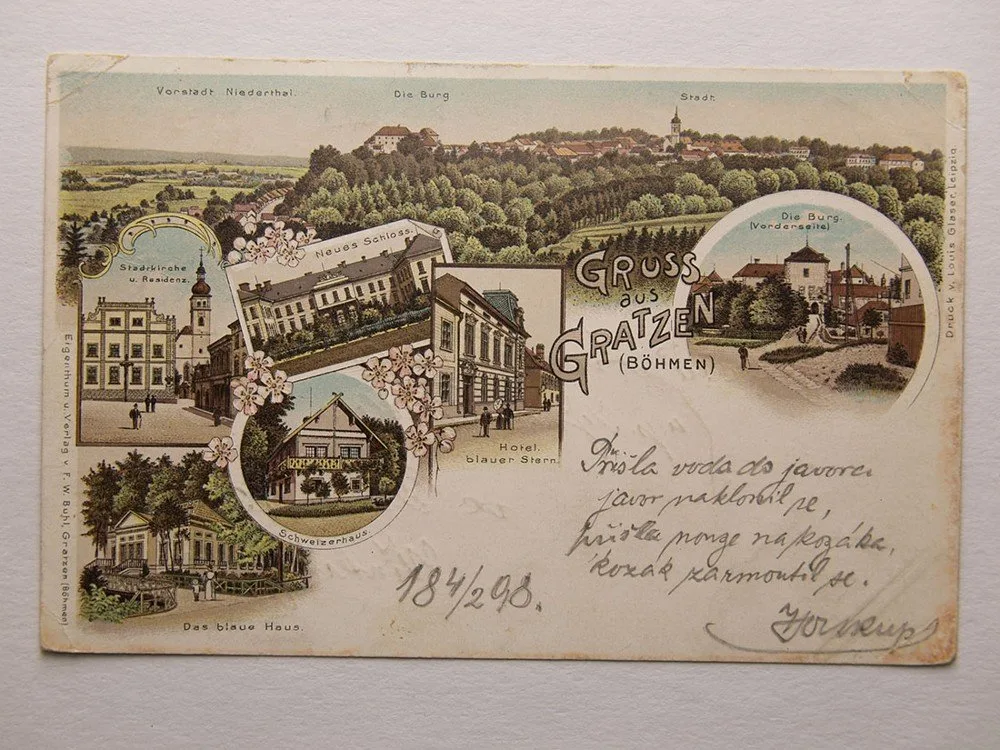 Vorstadt Niederthal.
Die Burg
Stadt.
Die Burg.
(Vorderseite)
Stadtkirche
u. Residenz.
Neues Schloss.
GRUSS
aus
GRATZEN
(BÖHMEN)
Hotel.
blauer Stern.
Schweizerhaus.
Das blaue Haus.
Eigenthum u. Verlag v. F. W. Bühl, Gratzen (Böhmen)
Druck v. Louis Glaser, Leipzig
Přišla voda do javora
javor naklonil se,
přišla nouze na kozáka,
kozák zarmoutil se.
18 4/2 98.